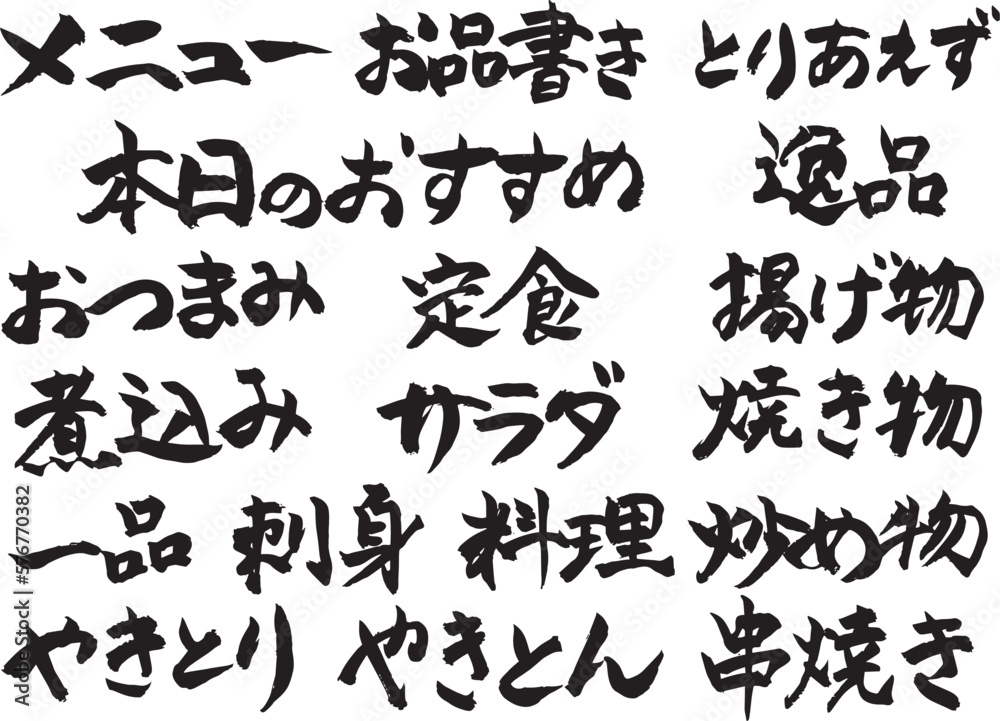 メニュー お品書き とりあえず
本日のおすすめ 逸品
おつまみ 定食 揚げ物
煮込み サラダ 焼き物
一品 刺身 料理 炒め物
やきとり やきとん 串焼き
Adobe Stock | #576770382